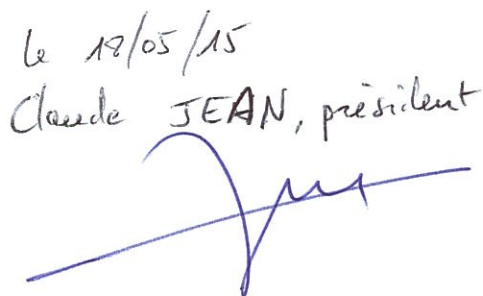 le 18/05/15
Claude JEAN, président